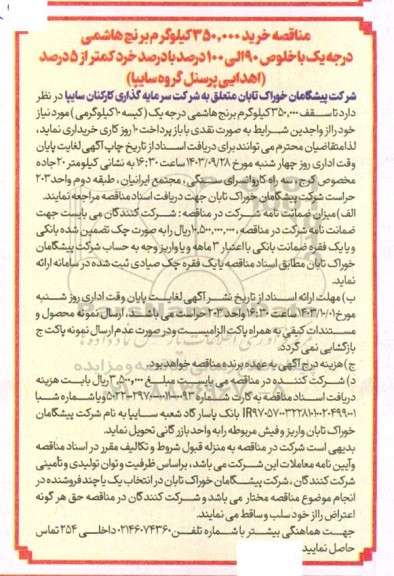 مناقصه خرید ۳۵۰,۰۰۰ کیلوگرم برنج هاشمی
درجه یک با خلوص ۹۰ الی ۱۰۰ درصد با درصد خرد کمتر از ۵ درصد
(اهدایی پرسنل گروه سایپا)
شرکت پیشگامان خوراک تابان متعلق به شرکت سرمایه گذاری کارکنان سایپا در نظر
دارد تا سقف ۳۵۰,۰۰۰ کیلوگرم برنج هاشمی درجه یک (کیسه ۱۰ کیلوگرمی) مورد نیاز
خود را از واجدین شرایط به صورت نقدی با باز پرداخت ۱۰ روز کاری خریداری نماید،
لذا متقاضیان محترم می توانند برای دریافت اسناد از تاریخ چاپ آگهی لغایت پایان
وقت اداری روز چهار شنبه مورخ ۱۴۰۳/۰۹/۲۸ ساعت ۱۶:۳۰ به نشانی کیلومتر ۲۰ جاده
مخصوص کرج، سه راه کاروانسرای سنگی، مجتمع ایرانیان، طبقه دوم واحد ۲۰۳
حراست شرکت پیشگامان خوراک تابان جهت دریافت اسناد مناقصه مراجعه نمایند.
الف) میزان ضمانت نامه شرکت در مناقصه: شرکت کنندگان می بایست جهت
ضمانت نامه شرکت در مناقصه، ۱۰,۵۰۰,۰۰۰,۰۰۰ ریال را به صورت چک تضمین شده بانکی
و یا یک فقره ضمانت بانکی با اعتبار ۳ ماهه و یا واریز وجه به حساب شرکت پیشگامان
خوراک تابان مطابق اسناد مناقصه یا یک فقره چک صیادی ثبت شده در سامانه ارائه
نماید.
ب) مهلت ارائه اسناد از تاریخ نشر آگهی لغایت پایان وقت اداری روز شنبه
مورخ ۱۴۰۳/۱۰/۰۱ ساعت ۱۶:۳۰ واحد ۲۰۳ حراست می باشد، ارسال نمونه محصول و
مستندات کیفی به همراه پاکت الزامیست و در صورت عدم ارسال نمونه پاکت ج
بازگشایی نمی گردد.
ج) هزینه درج آگهی به عهده برنده مناقصه خواهد بود.
د) شرکت کننده در مناقصه می بایست مبلغ ۳,۵۰۰,۰۰۰ ریال بابت هزینه
دریافت اسناد مناقصه به کارت شماره و یا شماره شبا
بانک پاسارگاد شعبه سایپا به نام شرکت پیشگامان
خوراک تابان واریز و فیش مربوطه را به واحد بازرگانی تحویل نماید.
بدیهی است شرکت در مناقصه به منزله قبول شروط و تکالیف مقرر در اسناد مناقصه
وآیین نامه معاملات این شرکت می باشد، براساس ظرفیت و توان تولیدی و تأمینی
شرکت کنندگان، شرکت پیشگامان خوراک تابان در انتخاب یک یا چند فروشنده در
انجام موضوع مناقصه مختار می باشد و شرکت کنندگان در مناقصه حق هر گونه
اعتراض را از خود سلب و ساقط می نمایند.
جهت هماهنگی بیشتر با شماره تلفن ۰۲۱۴۶۰۷۴۳۶۰ داخلی ۲۵۴ تماس
حاصل نمایید